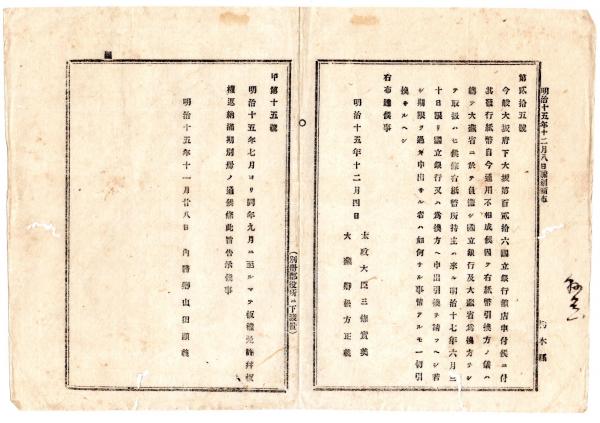 明治十五年十二月八日
第貳拾五號
今般大坂府下大坂第百貳拾六國立銀行鎖店申付候ニ付
其發行紙幣自今通用不相成候因テ右紙幣引換方ノ儀ハ
總テ大藏省ニ於テ負擔シ國立銀行及大藏省爲換方ヲシ
テ取扱ハセ候條右紙幣所持主ハ來ル明治十七年六月三
十日限リ國立銀行又ハ爲換方ヘ申出引換ヲ請フヘシ若
シ期限ヲ過キ申出サル者ハ如何ナル事情アルモ一切引
換サルヘシ
右布達候事
明治十五年十二月四日
太政大臣三條實美
大藏卿松方正義
甲第十五號
明治十五年七月ヨリ同年九月ニ至ルマテ板權免許
權返納滿期別冊ノ通候條此旨告示候事
明治十五年十一月廿八日
內務卿山田顯義
(別冊郡役所ニ下渡置)